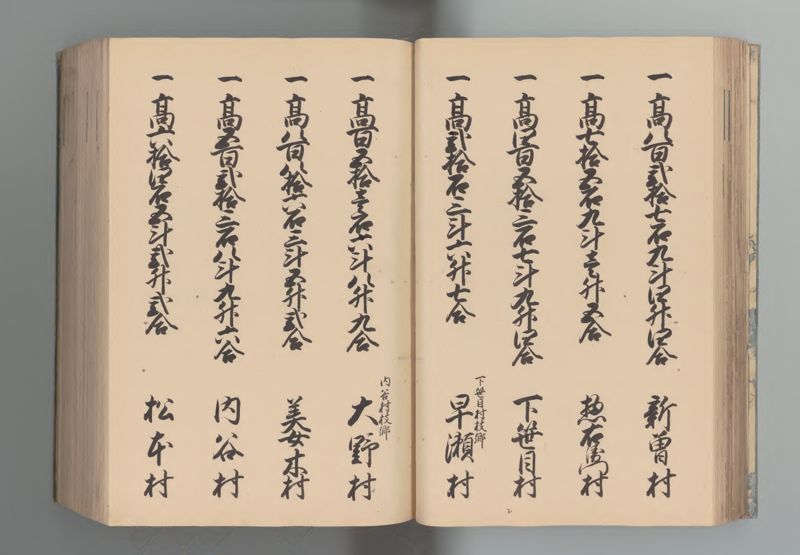 一 高八百弐拾七石九斗四升四合 新曽村
一 高七拾五石九斗壱升五合 惣右衛門村
一 高四百五拾三石七斗九升四合 下笹目村
下笹目村枝郷
一 高弐拾石三斗六升七合 早瀬村
内谷村枝郷
一 高百五拾壱石六斗八升九合 大野村
一 高八百八拾六石三斗五升弐合 美女木村
一 高五百弐拾三石八斗九升六合 内谷村
一 高六拾四石五斗弐升弐合 松本村